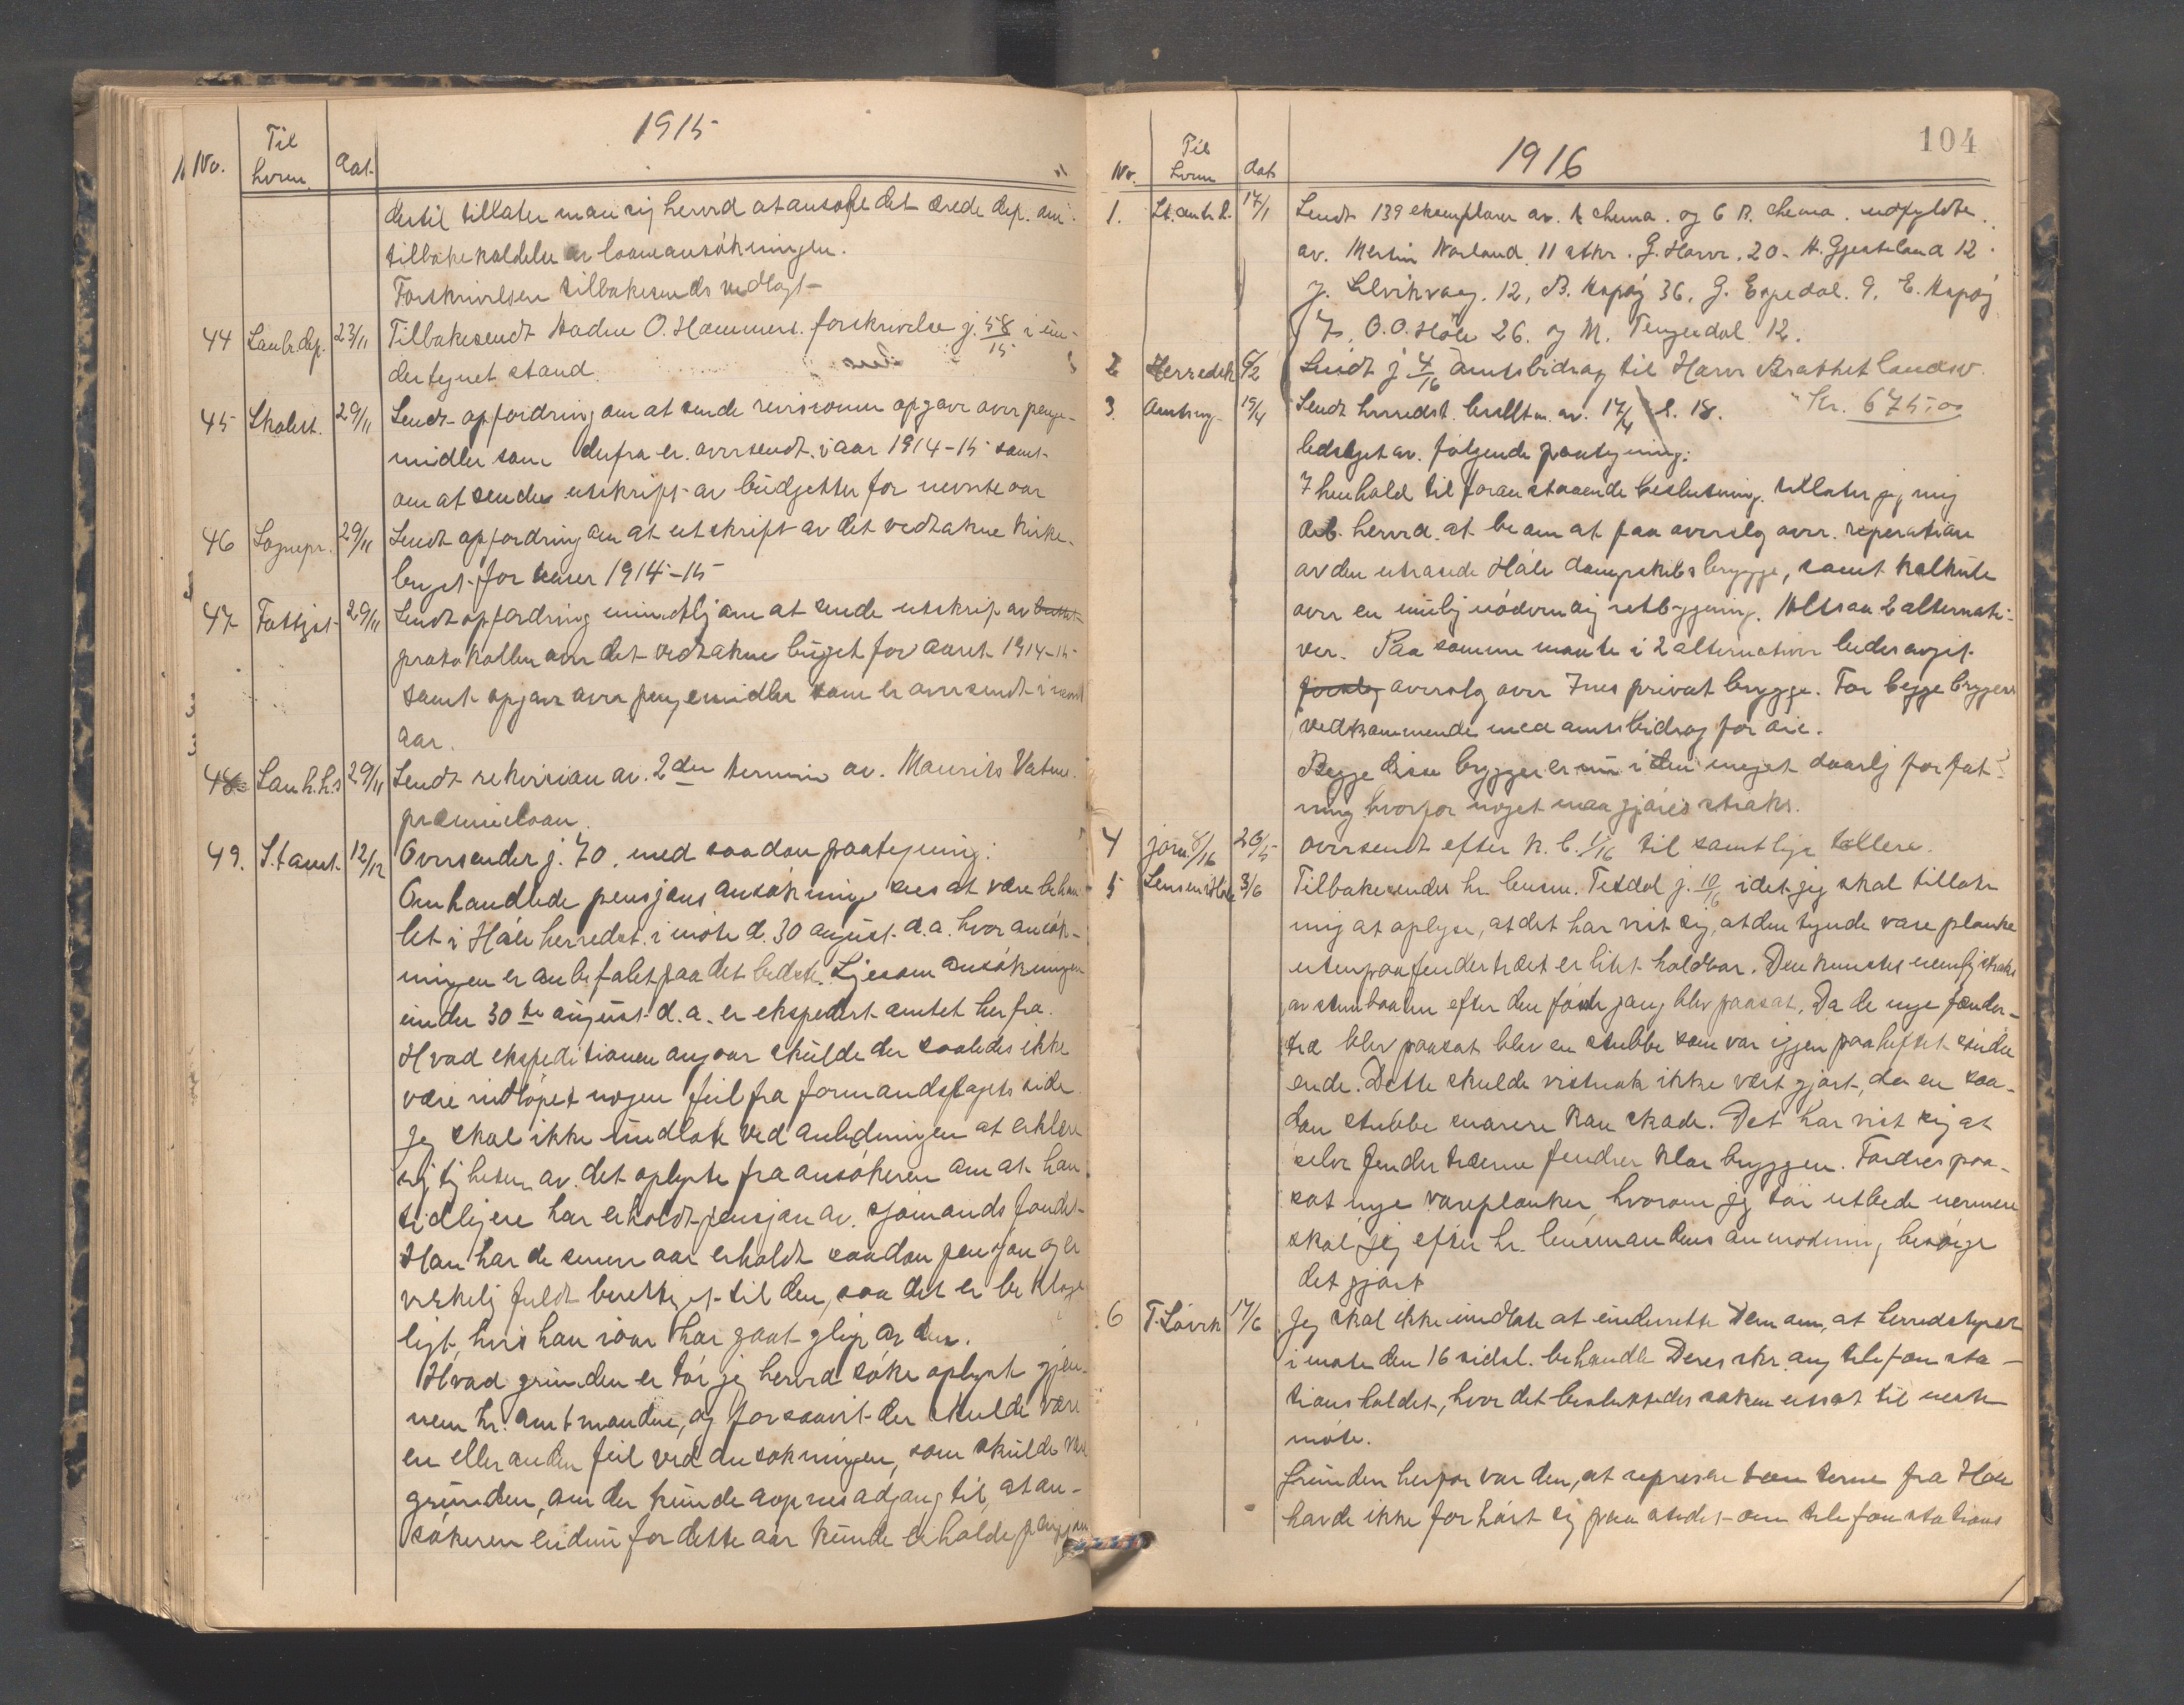 1915
No. Til hvem. dat.
dertil tillater man sig herved at ansøke det ærede dep. om
tilbakekaldelse av laaneansökningen.
Forskrivelsen tilbakesendes vedlagt
44 Lanbr. dep. 23/11 Tilbakesendt Madne O. Hammers. forskrivelse j. 58/15 i un-
dertegnet stand.
45 Skolest. 29/11 Sendt opfordring om at sende revisionen opgave over penge-
midler som derfra er oversendt i aar 1914-15 samt
om at sende utskript av budjetter for nevnte aar
46 Sognepr. 29/11 Sendt opfordring om at utskript av det vedtakne kirke-
buget for 1914-15
47 Fattigst. 29/11 Sendt opfordring om at sende utskrip av
protokollen over det vedtakne buget for aaret 1914-15
samt opgave over pengemidler som er oversendt i nevnt
aar.
48 Lan h. h. 29/11 Sendt rekvision av 2den termin av. Maurits Vatne
præmielaan.
49. St. amt. 12/12 Oversendes j. 70. med saadan paategning:
Omhandlede pensjons ansökning sees at være behan-
let i Höle herredst. i möte d. 30 august d.a. hvor ansök-
ningen er anbefalet paa det bedste. Ljesom ansökningen
under 30te august d.a. er ekspedert amtet herfra.
Hvad ekspeditionen angaar skulde der saaledes ikke
være indlöpet nogen feil fra formandskapets side.
Jeg skal ikke undlate ved anledningen at erklære
rigtigheten av det oplyste fra ansökeren om at han
tidligere har erholdt pensjon av sjömands fondet
Han har de senere aar erholdt saadan pensjon og er
virkelig fuldt berettiget til den, saa det er beklage
ligt, hvis han iaar har gaat glip av den.
Hvad grunden er tör jeg herved söke oplyst gjen-
nem hr. amtmanden, og forsaavit der skulde være
en eller anden feil ved ansökningen, som skulde være
grunden, om der kunde aapnes adgang til, at an-
sökeren endnu for dette aar kunde erholde pensjon
1916
104
No. Til hvem dat.
1. St. amt. R. 17/1 Sendt 139 eksemplarer av A chema. og 6 B. chema. udfyldte
av. Martin Norland. 11 stkr. G. Havre. 20. H. Gjesteland 12.
J. Selvikvaag. 12, B. Aspöy 36. G. Espedal. 9. E. Aspöy
7. O.O. Höle 26. og M. Tengesdal 12.
2 Herredsk 5/2 Sendt j 4/16 amtsbidrag til Havre Brattetlandsv.
Kr. 675,00
3. Amtsing. 19/4 Sendt herredst. beslutn. av. 17/4 s. 18.
ledsaget av. følgende paategning:
I henhold til foranstaaende beslutning tillater jeg mig
herved at be om at faa overslag over. reperation
av den utrasede Höle dampskibsbrygge, samt kalkule
over en mulig nödvendig utbygging. Altsaa 2 alternati-
ver. Paa samme maate i 2 alternativer bedes avgit
forslag overslag over Ims privat brygge. For begge bryggers
vedkommende med amtsbidrag for öie.
Begge disse brygger er nu i den meget daarlig forfat-
ning hvorfor noget maa gjöres straks.
4 jörn. 8/16 26/5 oversendt efter K. b. 1/16 til samtlige tellere.
5 Lensm. Höle 3/6 Tilbakesendes hr. lensm. Tesdal j. 10/16 idet jeg skal tillate
mig at oplyse, at det har vist sig, at den tynde vare planke
utenpaa fendertræet er litet holdbar. Den knustes nemlig straks
av dampbaaten efter den förste gang blev paasat. Da de nye fender-
træ blev paasat blev en stubbe som var igjen paaheftet i siden
ende. Dette skulde vistnok ikke vært gjort, da en saa-
dan stubbe snarere kan skade. Det har vist sig at
selve fendertræerne fendrer klar bryggen. Fordres paa-
sat nye vareplanker, hvorom jeg tör utbede nermere
skal jeg efter hr. lensmandens anmodning, besörge
det gjort
6 T. Lövik 17/6 Jeg skal ikke undlate at underrette Dem om, at herredstyret
i mote den 16 sidst. behandle Deres skr. ang telefonsta-
tionsholdet, hvor det besluttedes saken utsat til neste
möte.
Grunden herfor var den, at representanterne fra Höle
havde ikke forhört sig paa stedet om telefonstations